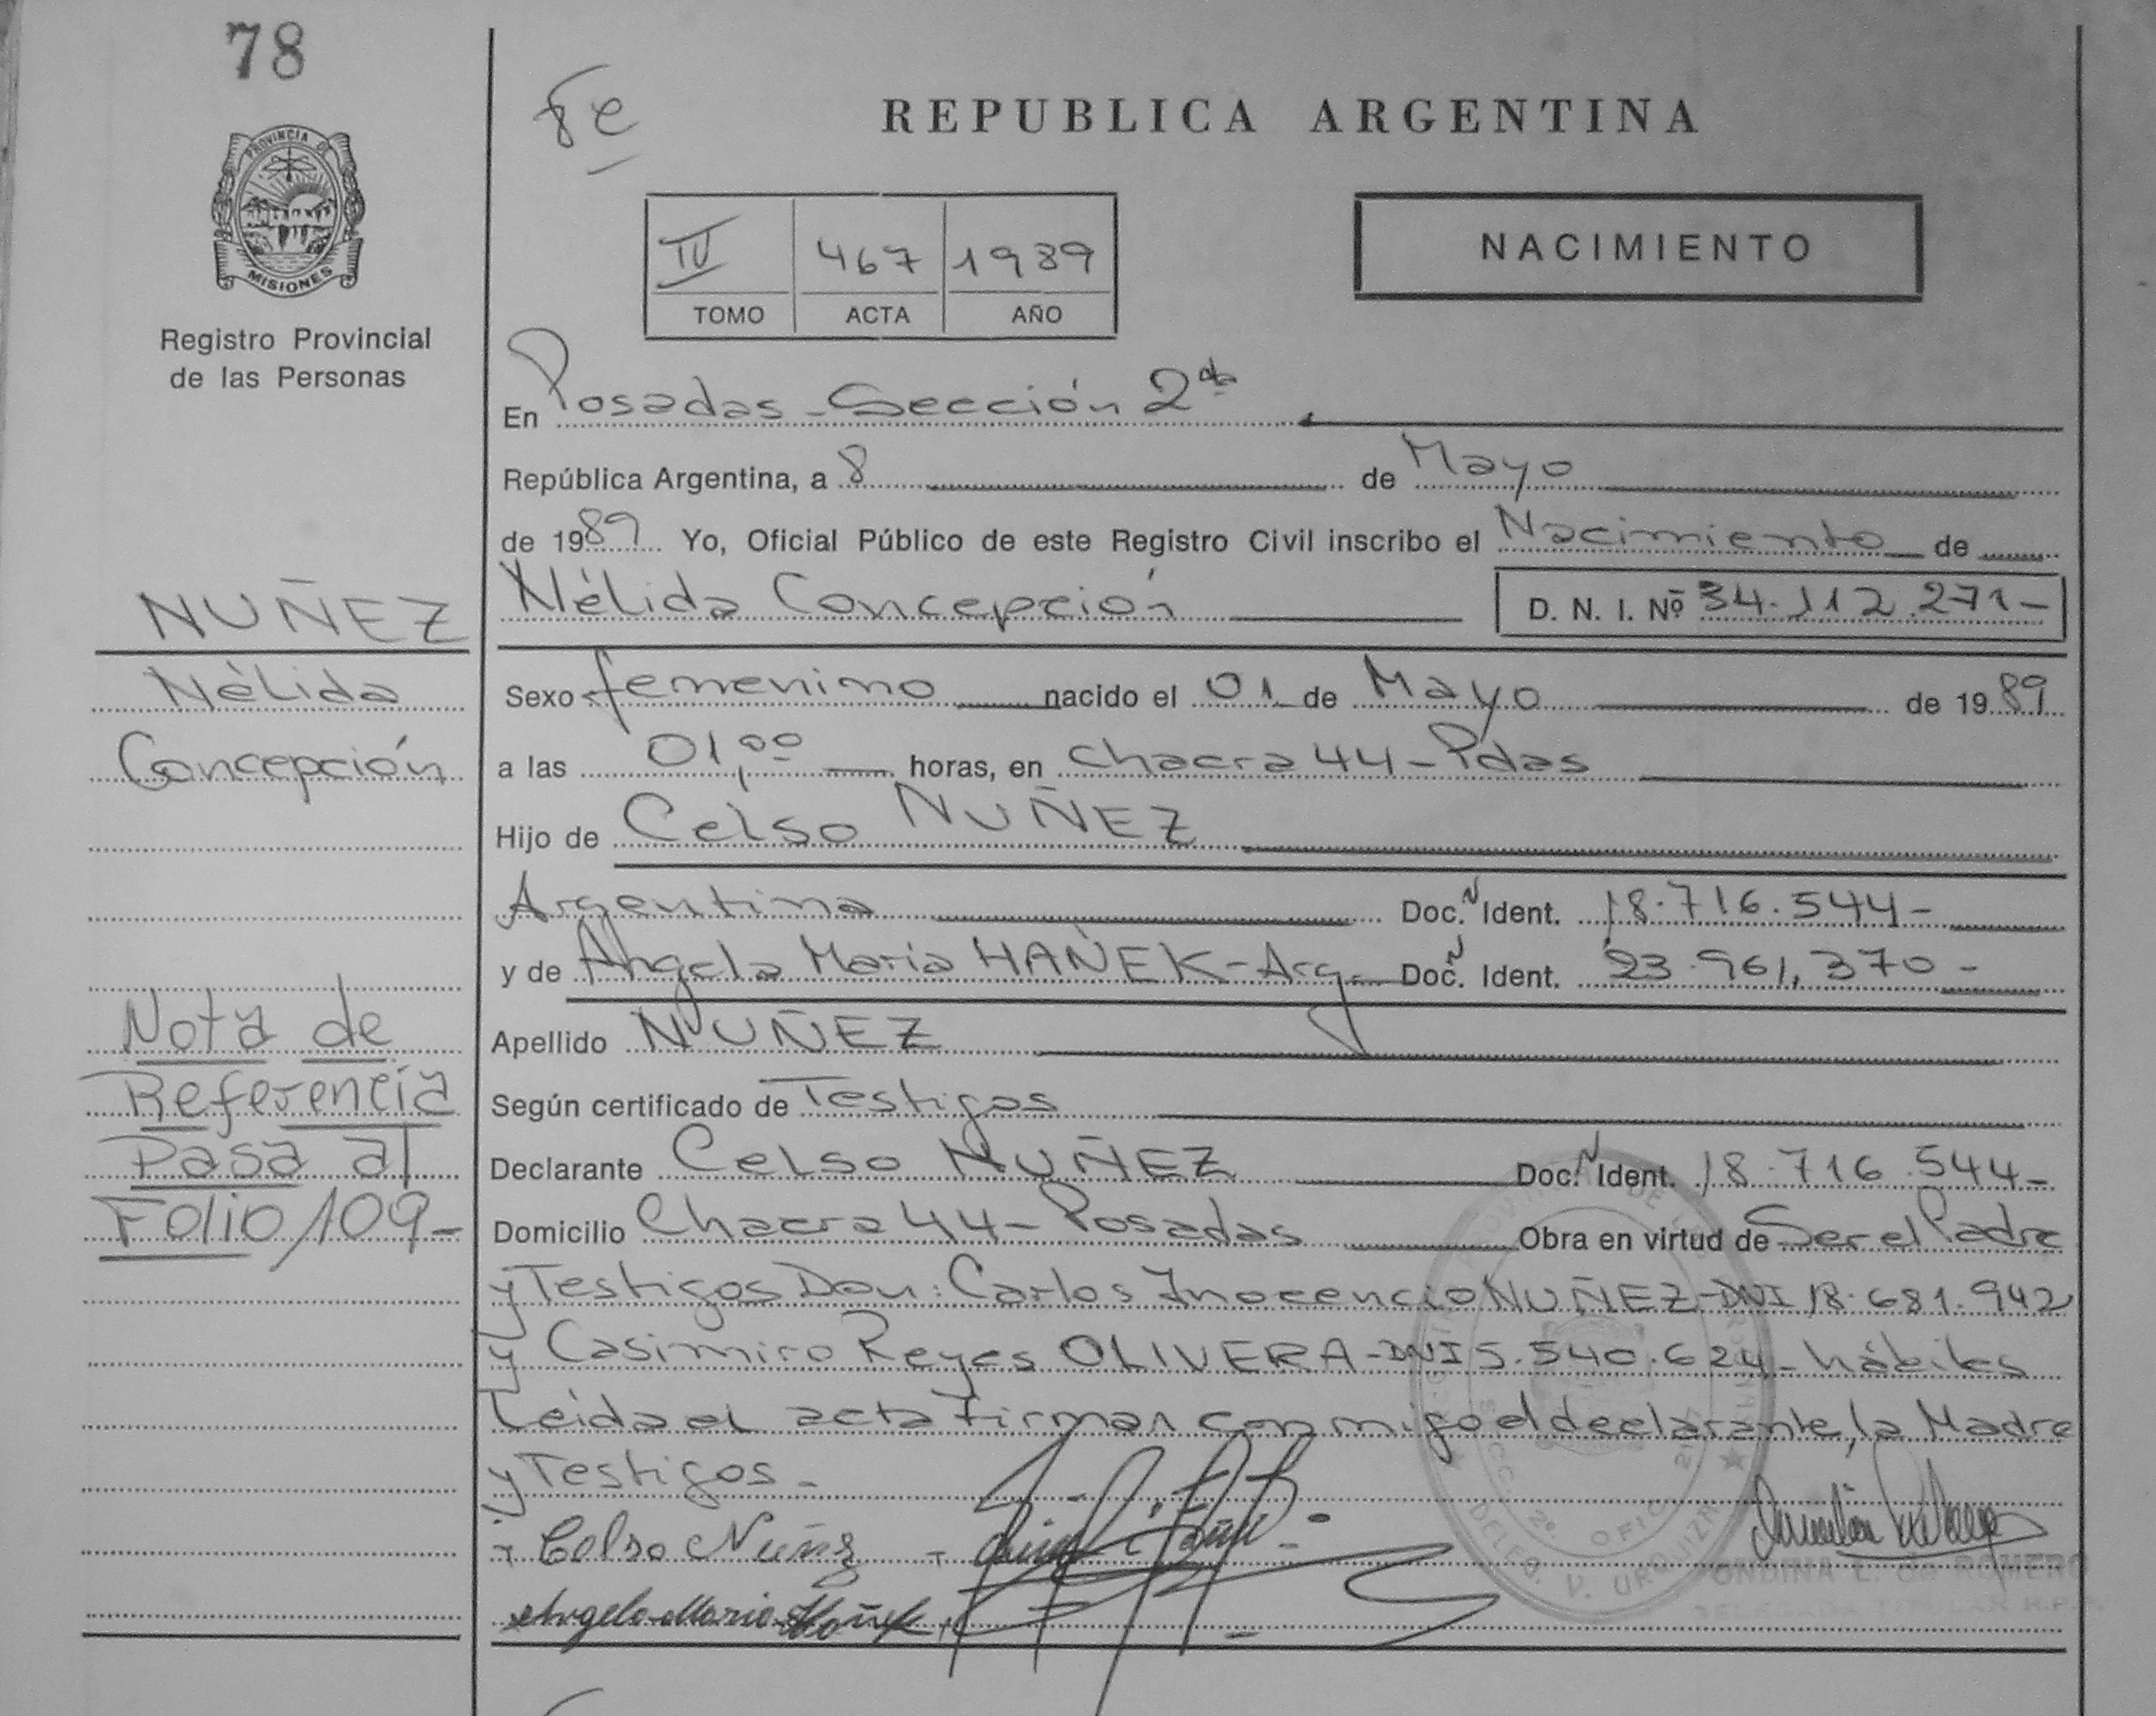 78
PROVINCIA DE
MISIONES
Registro Provincial
de las Personas
REPUBLICA ARGENTINA
NACIMIENTO
IV 467 1989
TOMO ACTA AÑO
En Posadas - Sección 2da
República Argentina, a 8 de Mayo
de 1989 Yo, Oficial Público de este Registro Civil inscribo el Nacimiento de
Nélida Concepción D. N. I. Nº 34.112.271-
Sexo femenino nacido el 01 de Mayo de 1989
a las 01,00 horas, en chacra 44 - Pdas
Hijo de Celso NUÑEZ
Argentina Doc. N Ident. 18.716.544-
y de Angela Maria HAÑEK - Arg. Doc. N Ident. 23.961,370-
Apellido NUÑEZ
Según certificado de Testigos
Declarante Celso NUÑEZ Doc. N Ident. 18.716.544-
Domicilio Chacra 44 - Posadas Obra en virtud de Ser el Padre
y Testigos Don: Carlos Inocencio NUÑEZ - DNI 18.681.942
y Casimiro Reyes OLIVERA - DNI 5.540.624 - hábiles
Leida el acta Firman conmigo el declarante, la Madre
y Testigos -
Celso Nuñez
Angela Maria Hañek
NUÑEZ
Nélida
Concepción
Nota de
Referencia
Pasa al
Folio 109-
DELFO. V. URQUIZA
SECC. 2º OFIC
ONDINA L. DE ROMERO
DELEGADA TITULAR R.P.P.